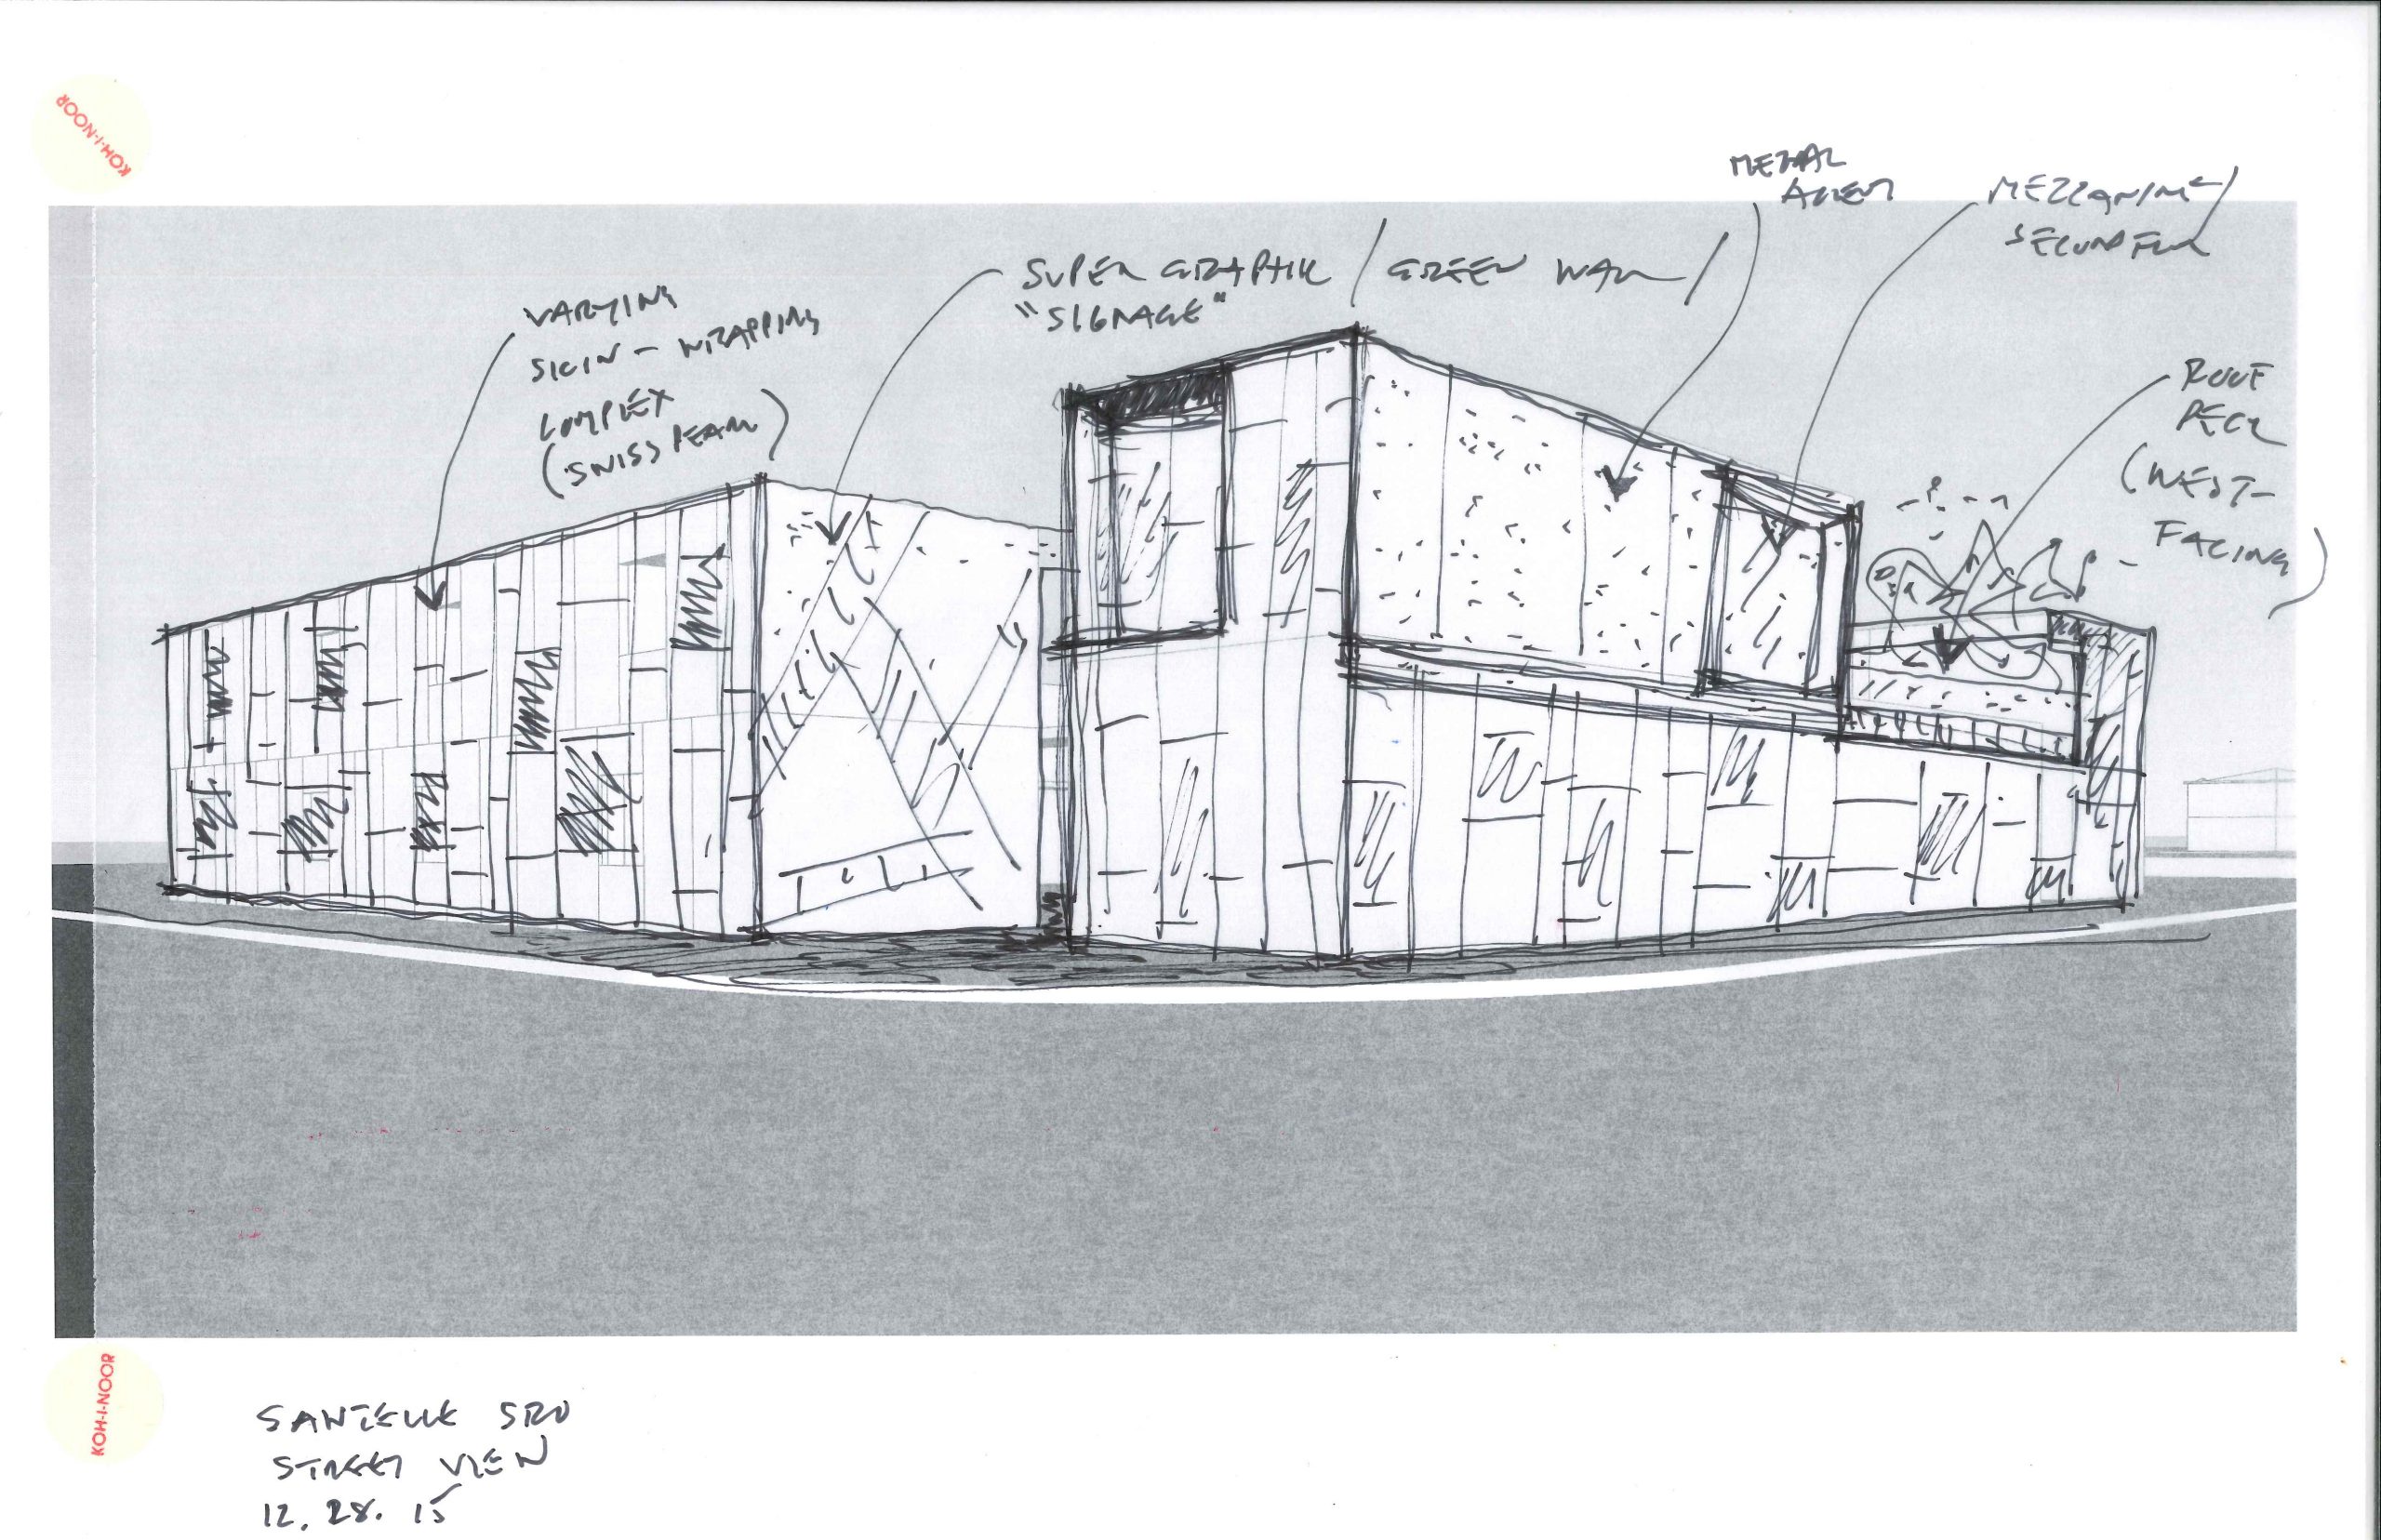 KOH-I-NOOR
METAL
ACCENT
MEZZANINE/
SECOND FLR
SUPER GRAPHIC / GREEN WALL /
"SIGNAGE"
VARYING
SKIN - WRAPPING
COMPLEX
(SWISS PEARL)
ROOF
DECK
(WEST-
FACING)
KOH-I-NOOR
SRO
STREET VIEW
12. 28. 15